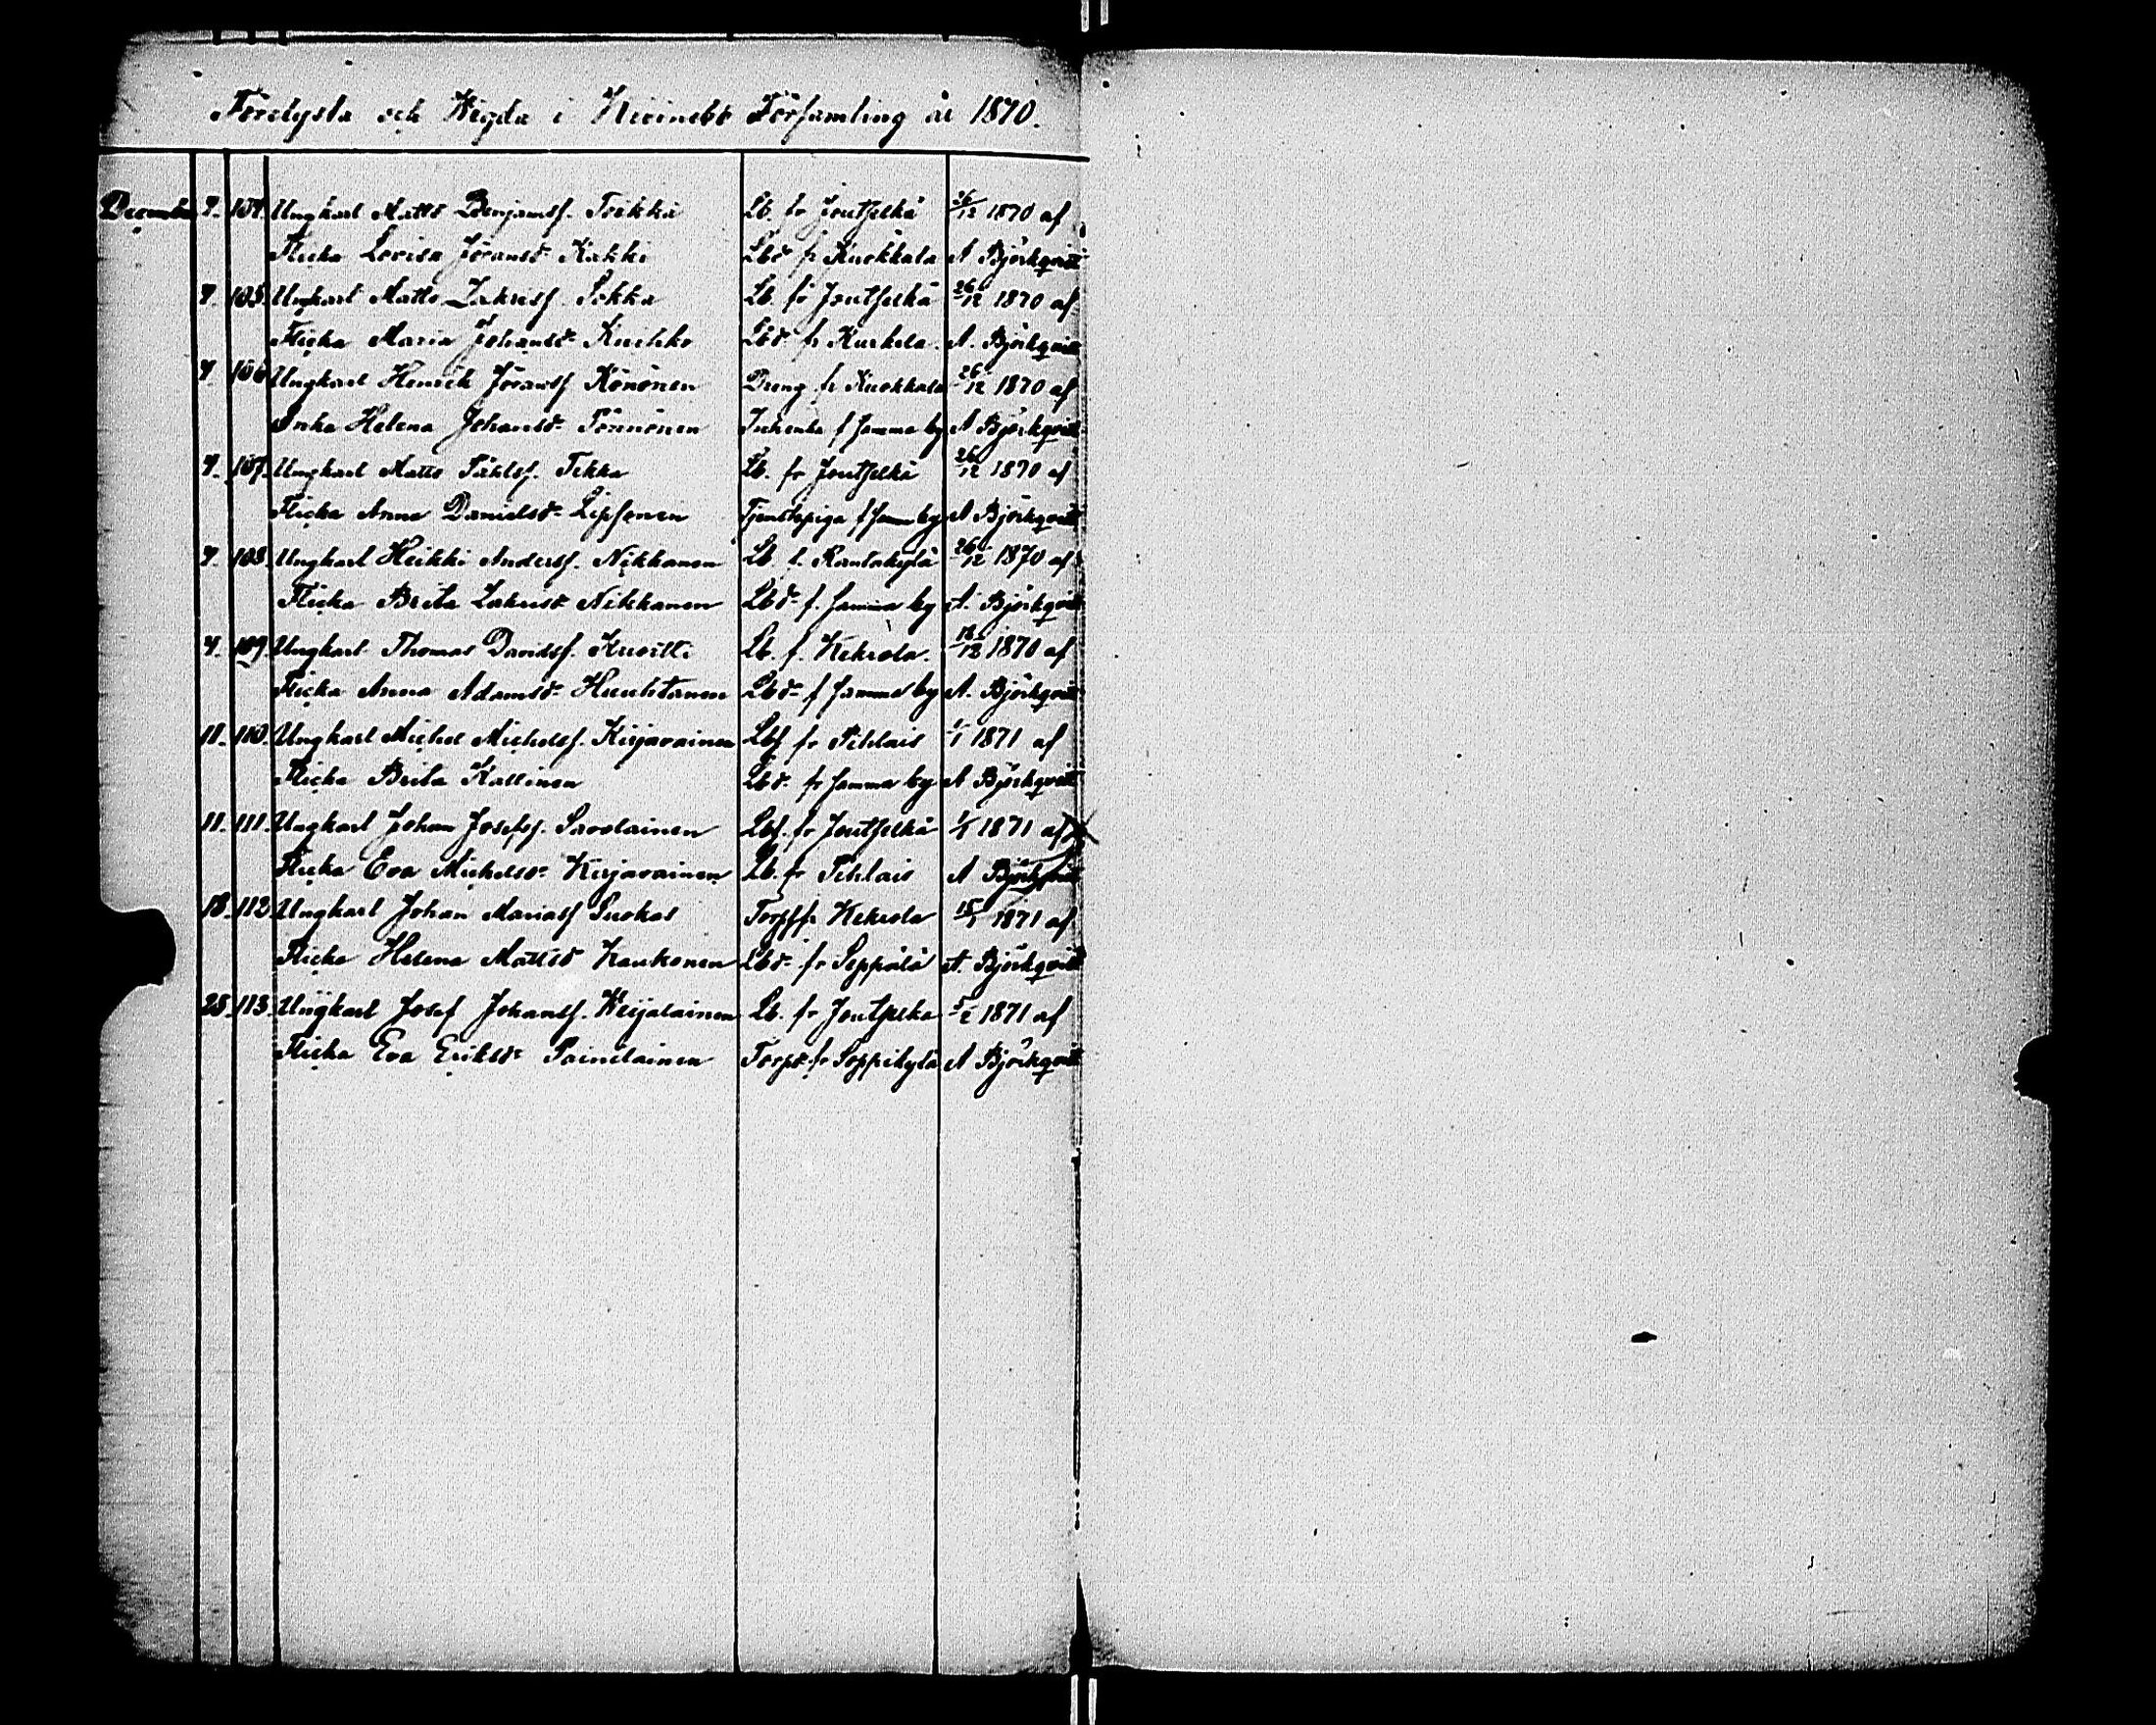 Förelysta och Wigda i Kivinebb Församling år 1870.
December 4. 104. Ungkarl Matts Benjamsf. Toikka Lb. fr Joutselkä 26/12 1870 af
Flicka Lovisa Jöransd. Kakki Lbd fr Kuokkala A Björkqvist
4. 105. Ungkarl Matts Zakrisf. Sokka Lb. fr Joutselkä 26/12 1870 af
Flicka Maria Johansd. Lbd fr Kurkela. A. Björkqvist
4. 106 Ungkarl Henrik Jöransf Könönen Dreng fr Kuokkala 26/12 1870 af
Enka Helena Johansd. Pönnönen f samma by A Björkqvist
4. 107. Ungkarl Matts Påhlsf. Tikka Lb. fr Joutselkä 26/12 1870 af
Flicka Anna Danielsd. Lipsonen Tjenstepiga f samma by A Björkqvist
4. 108. Ungkarl Heikki Andersf. Nikkanen Lb. f. Rantakylä 26/12 1870 af
Flicka Brita Zakrisd Nikkanen Lbd. f. samma by A. Björkqvist
4. 109. Ungkarl Thomas Davidsf. Kuortti Lb. f. Kekrola. 18/12 1870 af
Flicka Anna Adamsd. Huuhtanen Lbd. f samma by A. Björkqvist
11. 110. Ungkarl Michel Michelsf. Kirjavainen Lbf fr Pihlais 1/1 1871 af
Flicka Brita Kallinen Lbd. fr samma by A Björkqvist
11. 111. Ungkarl Johan Josefsf. Savolainen Lbf. fr Joutselkä 1/1 1871 af
Flicka Eva Michelsd. Kirjavainen Lb. fr Pihlais A Björkqvist
18. 112. Ungkarl Johan Mariasf Suokas Torpf fr Kekrola 15/1 1871 af
Flicka Helena Mattsd Kaukonen Lbd. fr Seppälä A. Björkqvist
25. 113. Ungkarl Josef Johansf. Wirjalainen Lb. fr Joutselkä 5/2 1871 af
Flicka Eva Eriksd. Torpd. fr Soppikylä A Björkqvist